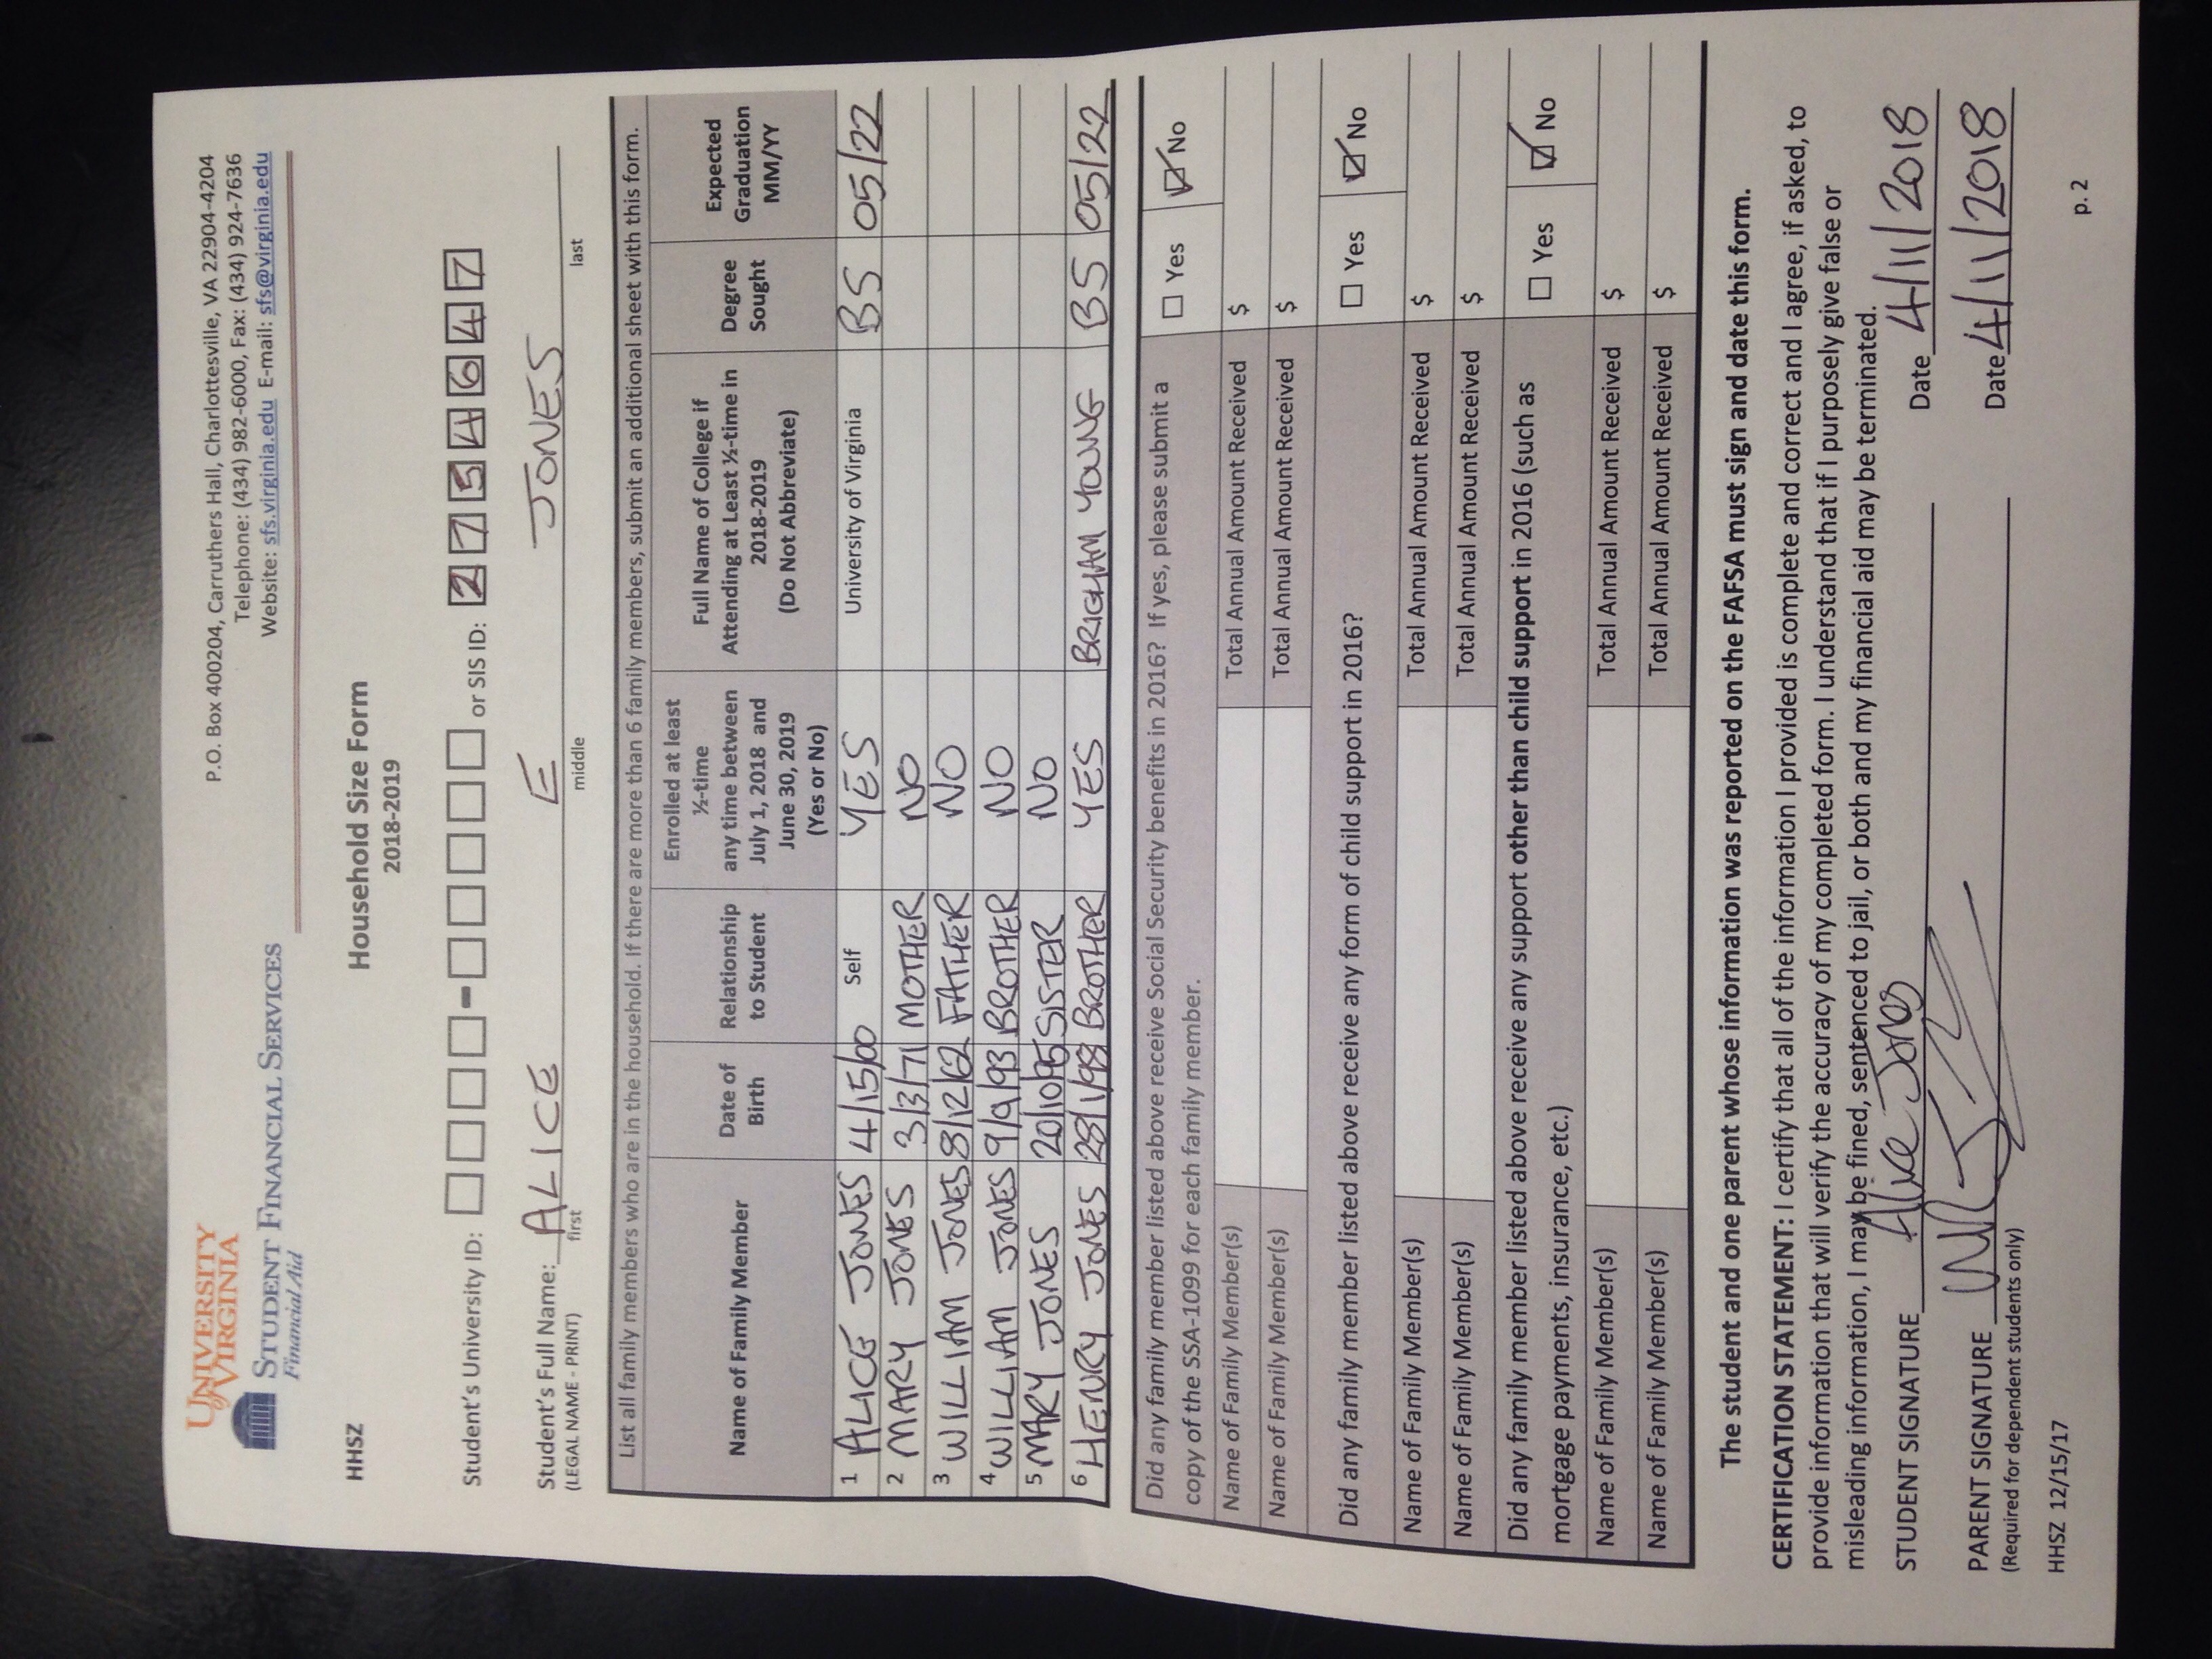 UNIVERSITY
of VIRGINIA
STUDENT FINANCIAL SERVICES
Financial Aid
P.O. Box 400204, Carruthers Hall, Charlottesville, VA 22904-4204
Telephone: (434) 982-6000, Fax: (434) 924-7636
Website: sfs.virginia.edu E-mail: sfs@virginia.edu
HHSZ
Household Size Form
2018-2019
Student's University ID: - or SIS ID: 2754647
Student's Full Name: ALICE E JONES
(LEGAL NAME - PRINT) first middle last
List all family members who are in the household. If there are more than 6 family members, submit an additional sheet with this form.
Name of Family Member
Date of
Birth
Relationship
to Student
Enrolled at least
½-time
any time between
July 1, 2018 and
June 30, 2019
(Yes or No)
Full Name of College if
Attending at Least ½-time in
2018-2019
(Do Not Abbreviate)
Degree
Sought
Expected
Graduation
MM/YY
1 ALICE JONES 4/15/00 Self YES University of Virginia BS 05/22
2 MARY JONES 3/3/71 MOTHER NO
3 WILLIAM JONES 8/12/62 FATHER NO
4 WILLIAM JONES 9/9/93 BROTHER NO
5 MARY JONES 20/10/95 SISTER NO
6 HENRY JONES 28/1/98 BROTHER YES BRIGHAM YOUNG BS 05/22
Did any family member listed above receive Social Security benefits in 2016? If yes, please submit a
copy of the SSA-1099 for each family member.
Yes No
Name of Family Member(s) Total Annual Amount Received $
Name of Family Member(s) Total Annual Amount Received $
Did any family member listed above receive any form of child support in 2016? Yes No
Name of Family Member(s) Total Annual Amount Received $
Name of Family Member(s) Total Annual Amount Received $
Did any family member listed above receive any support other than child support in 2016 (such as
mortgage payments, insurance, etc.)
Yes No
Name of Family Member(s) Total Annual Amount Received $
Name of Family Member(s) Total Annual Amount Received $
The student and one parent whose information was reported on the FAFSA must sign and date this form.
CERTIFICATION STATEMENT: I certify that all of the information I provided is complete and correct and I agree, if asked, to
provide information that will verify the accuracy of my completed form. I understand that if I purposely give false or
misleading information, I may be fined, sentenced to jail, or both and my financial aid may be terminated.
STUDENT SIGNATURE Alice Jones Date 4/11/2018
PARENT SIGNATURE Date 4/11/2018
(Required for dependent students only)
HHSZ 12/15/17
p. 2